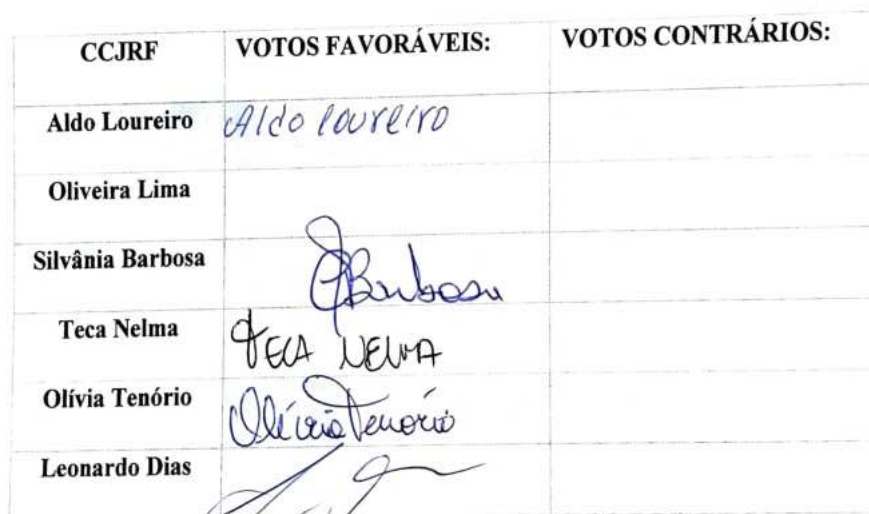 CCJRF VOTOS FAVORÁVEIS: VOTOS CONTRÁRIOS:
Aldo Loureiro Aldo Loureiro
Oliveira Lima
Silvânia Barbosa Barbosa
Teca Nelma TECA NELMA
Olívia Tenório Olívia Tenório
Leonardo Dias